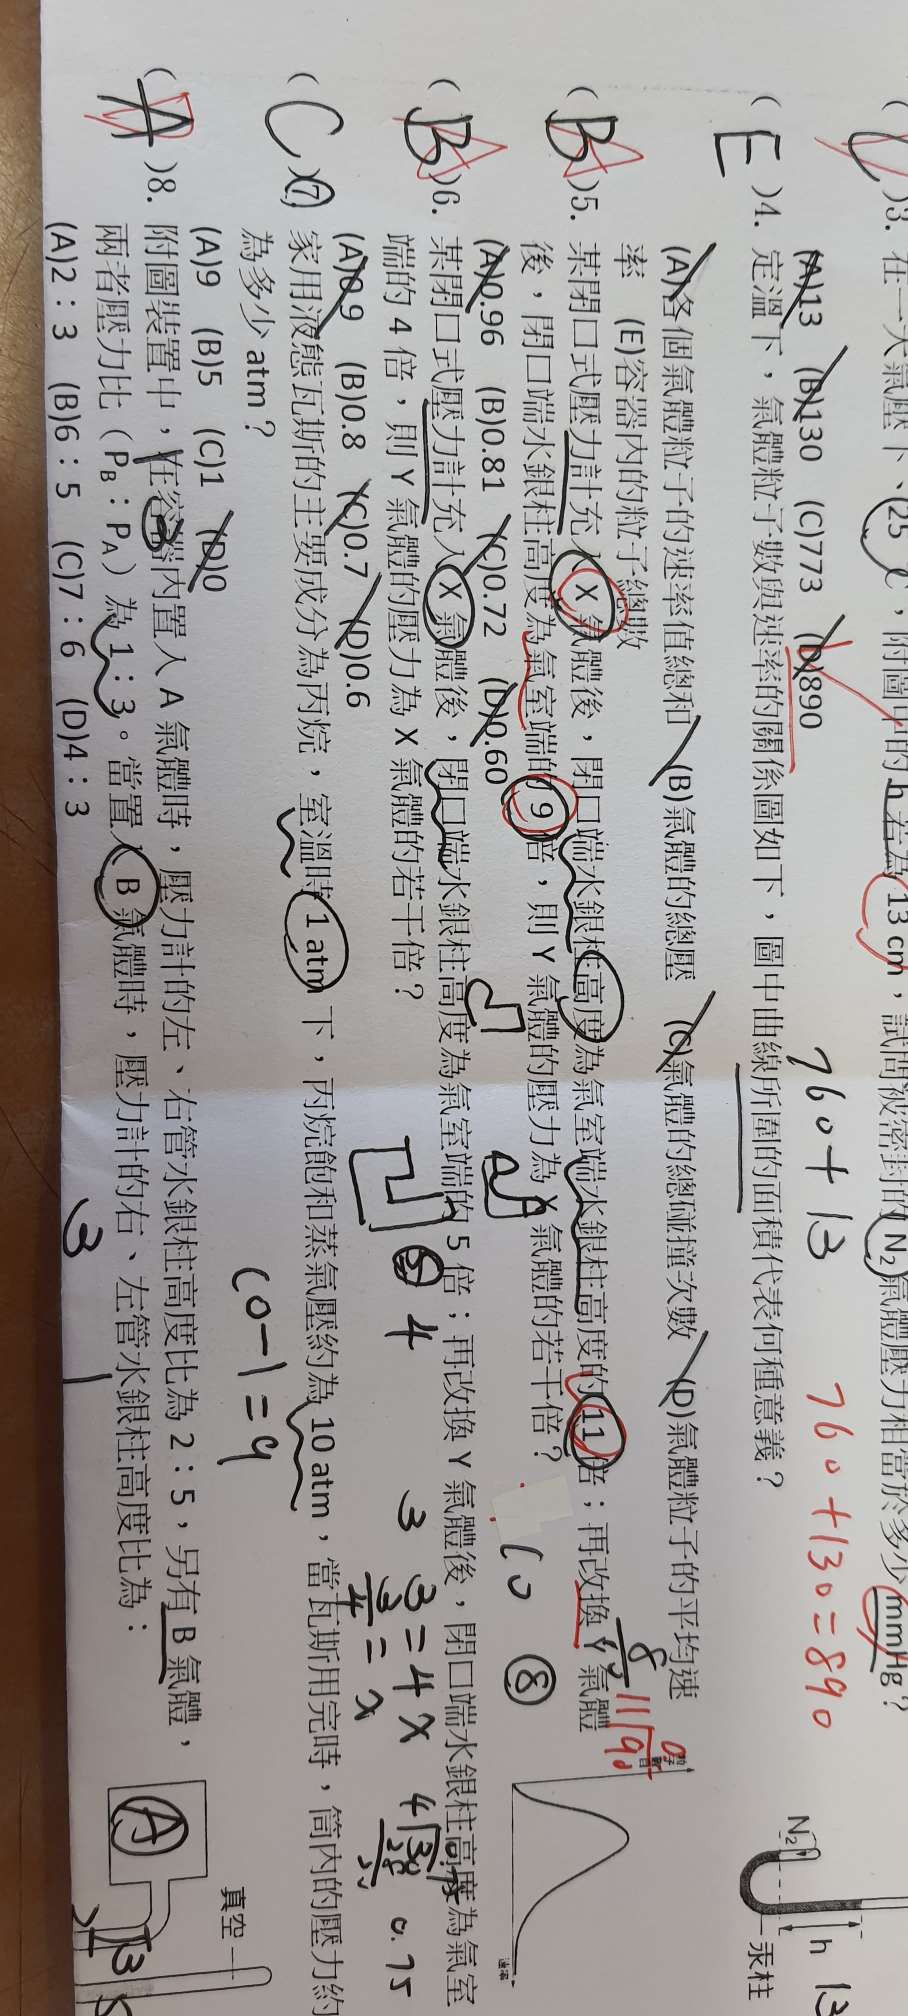 )3. 在一大氣壓下、25 ℃,附圖中的 h 若為 13 cm,試問被密封的 N₂ 氣體壓力相當於多少 mmHg?
(A)13 (B)130 (C)773 (D)890
760+13
760+130=890
N₂
h
13
汞柱
( E )4. 定溫下,氣體粒子數與速率的關係圖如下,圖中曲線所圍的面積代表何種意義?
(A)各個氣體粒子的速率值總和 (B)氣體的總壓 (C)氣體的總碰撞次數 (D)氣體粒子的平均速
率 (E)容器內的粒子總數
速率
( B )5. 某閉口式壓力計充入 X 氣體後,閉口端水銀柱高度為氣室端水銀柱高度的 11 倍;再改換 Y 氣體
後,閉口端水銀柱高度為氣室端的 9 倍,則 Y 氣體的壓力為 X 氣體的若干倍?
(A)0.96 (B)0.81 (C)0.72 (D)0.60
10
8
( B )6. 某閉口式壓力計充入 X 氣體後,閉口端水銀柱高度為氣室端的 5 倍;再改換 Y 氣體後,閉口端水銀柱高度為氣室
端的 4 倍,則 Y 氣體的壓力為 X 氣體的若干倍?
4 3 3=4x
3/4=x
0.75
(A)0.9 (B)0.8 (C)0.7 (D)0.6
( C )7. 家用液態瓦斯的主要成分為丙烷,室溫時 1 atm 下,丙烷飽和蒸氣壓約為 10 atm,當瓦斯用完時,筒內的壓力約
為多少 atm?
10-1=9
(A)9 (B)5 (C)1 (D)0
( A )8. 附圖裝置中,在容器內置入 A 氣體時,壓力計的左、右管水銀柱高度比為 2:5,另有 B 氣體,
兩者壓力比(P_B:P_A)為 1:3。當置入 B 氣體時,壓力計的右、左管水銀柱高度比為:
(A)2:3 (B)6:5 (C)7:6 (D)4:3
3 1
真空
A
3